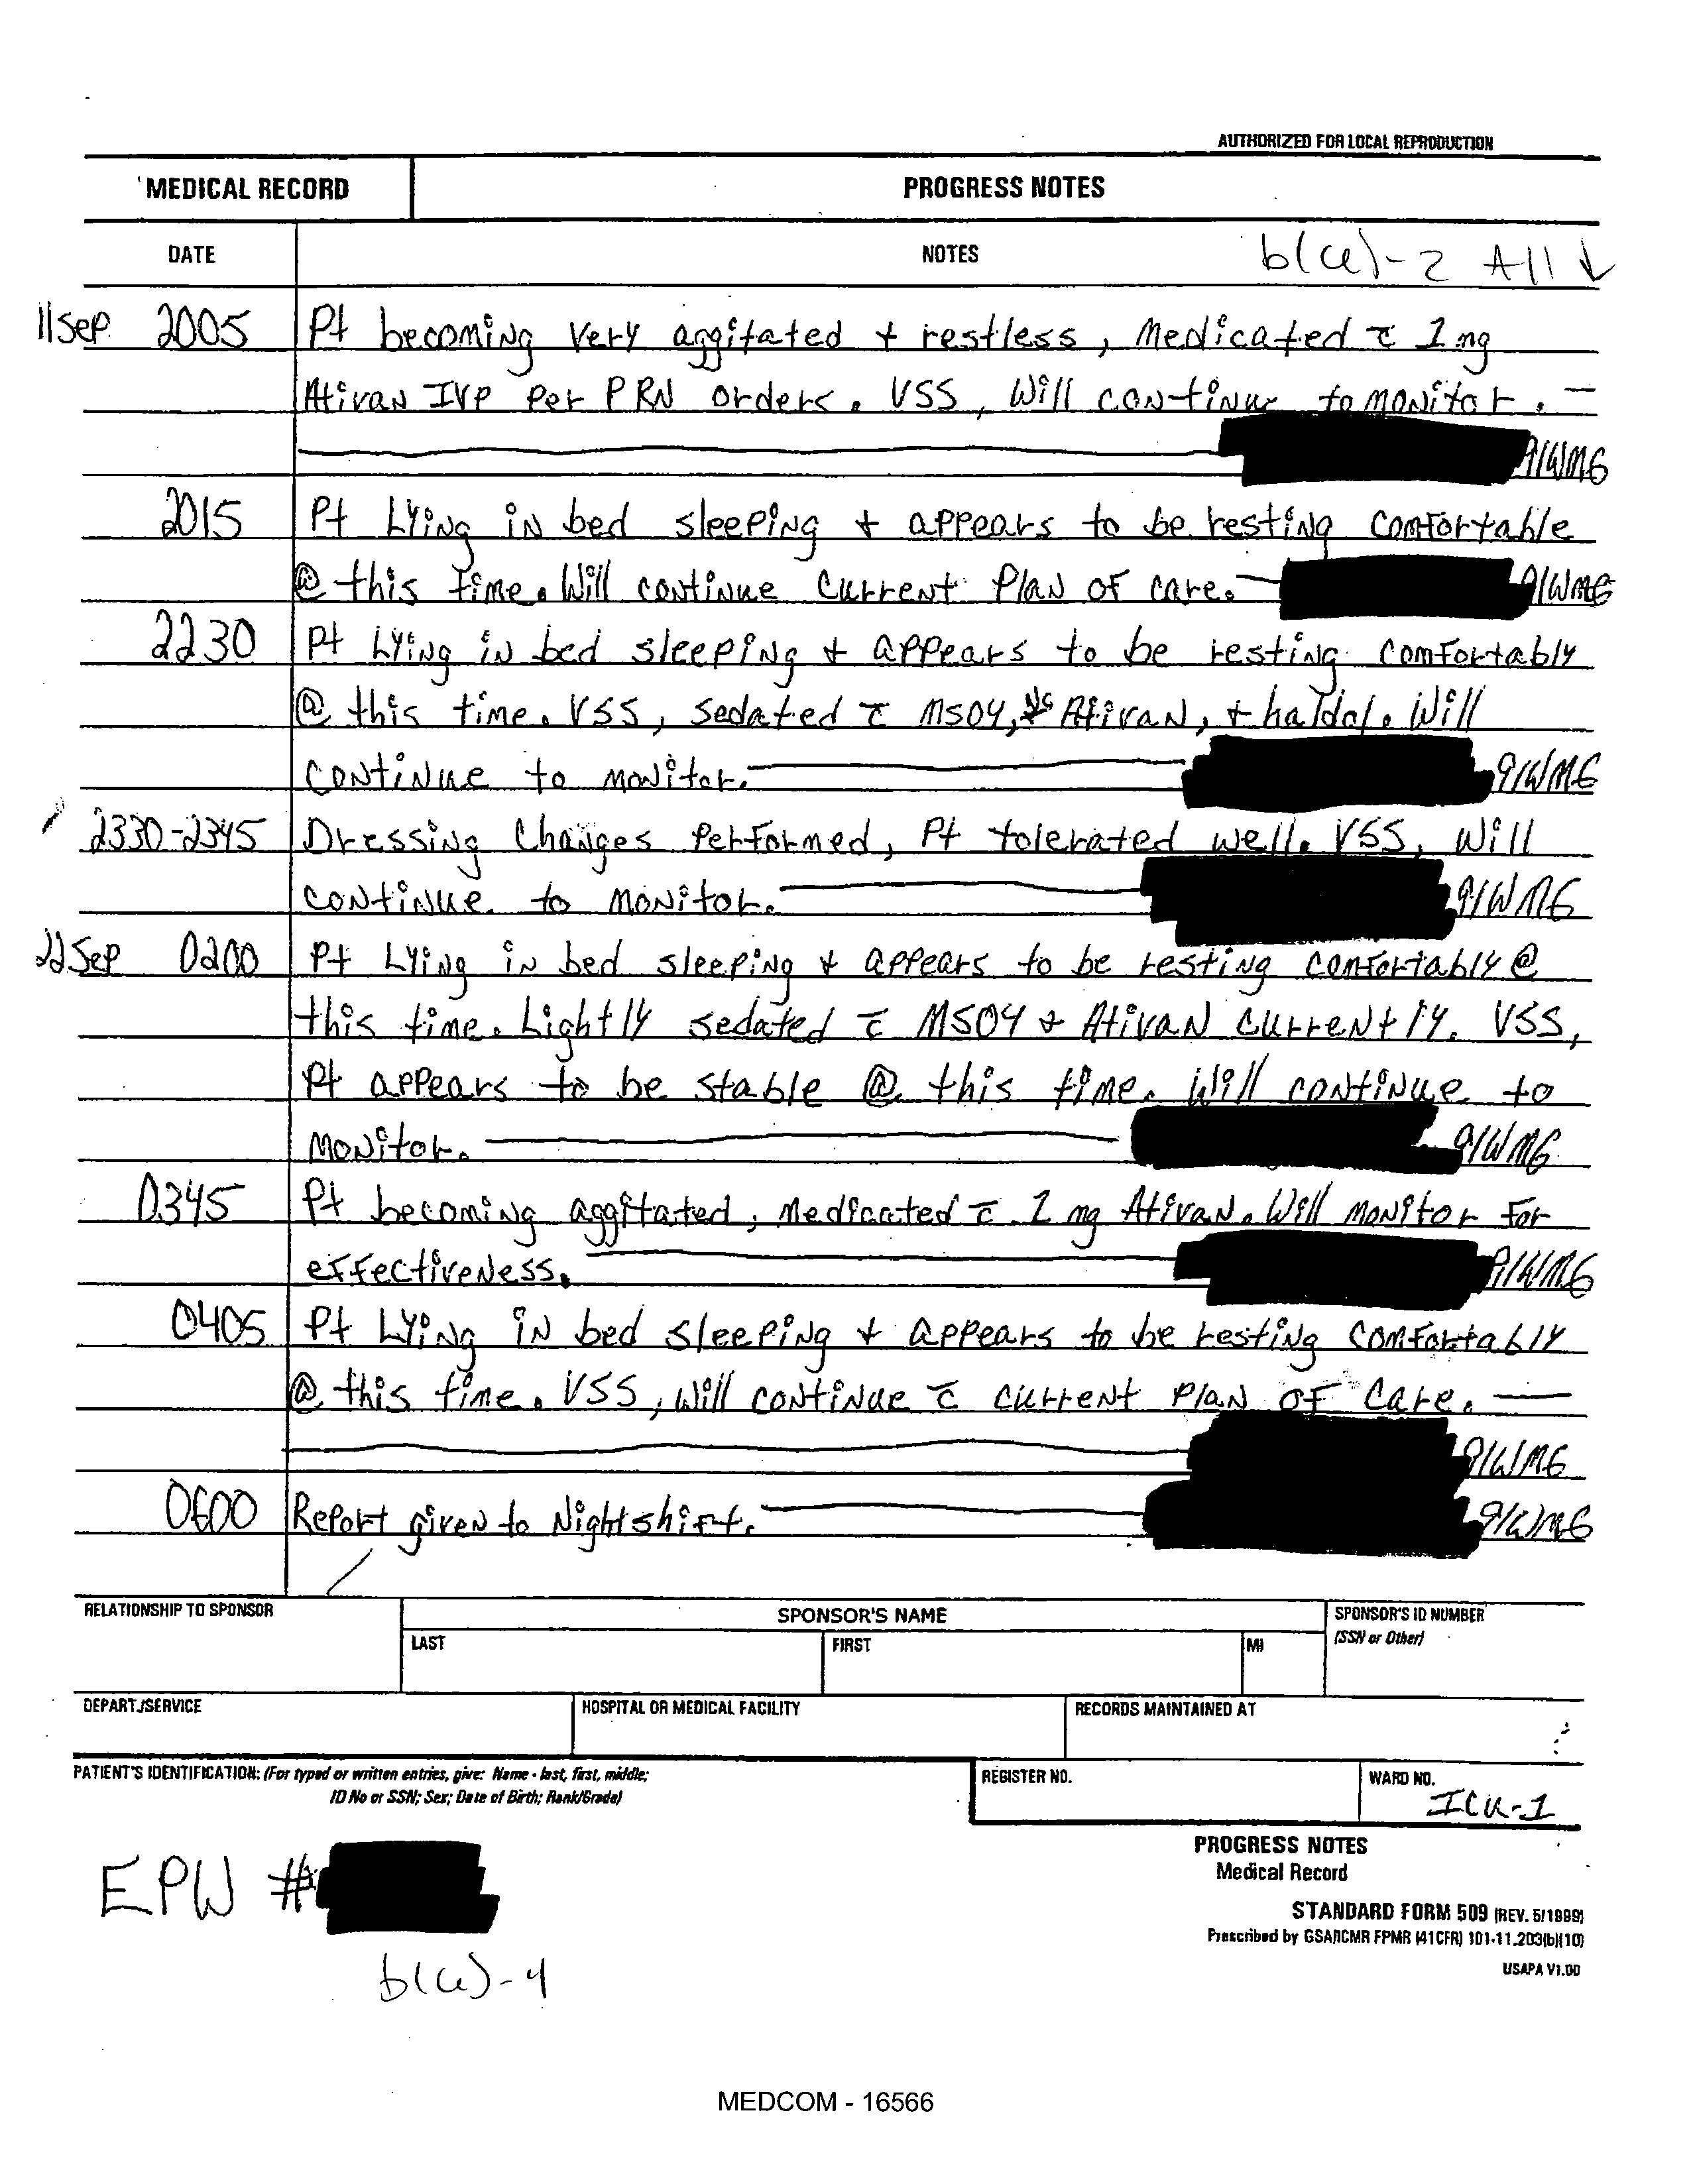 AUTHORIZED FOR LOCAL REPRODUCTION
MEDICAL RECORD PROGRESS NOTES
DATE NOTES b(6)-2 All ↓
11 Sep 2005 Pt becoming very aggitated + restless, Medicated c̄ 1 mg
Ativan IVP per PRN orders. VSS, Will continue to monitor. —
91WM6
2015 Pt Lying in bed sleeping + appears to be resting comfortable
@ this time. Will continue current plan of care. 91WM6
2230 Pt Lying in bed sleeping + appears to be resting comfortably
@ this time. VSS, sedated c̄ MSO4, Ativan, + haldol. Will
continue to monitor. 91WM6
2330-2345 Dressing Changes performed, Pt tolerated well. VSS, Will
continue to monitor. 91WM6
22 Sep 0200 Pt Lying in bed sleeping + appears to be resting comfortably @
this time. Lightly sedated c̄ MSO4 + Ativan currently. VSS,
Pt appears to be stable @ this time. Will continue to
monitor. 91WM6
0345 Pt becoming aggitated, Medicated c̄ 1 mg Ativan. Will monitor for
effectiveness. 91WM6
0405 Pt Lying in bed sleeping + appears to be resting comfortably
@ this time. VSS, will continue c̄ current plan of care. —
91WM6
0600 Report given to Nightshift. 91WM6
RELATIONSHIP TO SPONSOR SPONSOR'S NAME SPONSOR'S ID NUMBER
LAST FIRST MI (SSN or Other)
DEPART./SERVICE HOSPITAL OR MEDICAL FACILITY RECORDS MAINTAINED AT
PATIENT'S IDENTIFICATION: (For typed or written entries, give: Name - last, first, middle; REGISTER NO. WARD NO.
ID No or SSN; Sex; Date of Birth; Rank/Grade) ICU-1
PROGRESS NOTES
Medical Record
EPW #
STANDARD FORM 509 (REV. 5/1999)
Prescribed by GSA/ICMR FPMR (41CFR) 101-11.203(b)(10)
USAPA V1.00
b(6)-4
MEDCOM - 16566